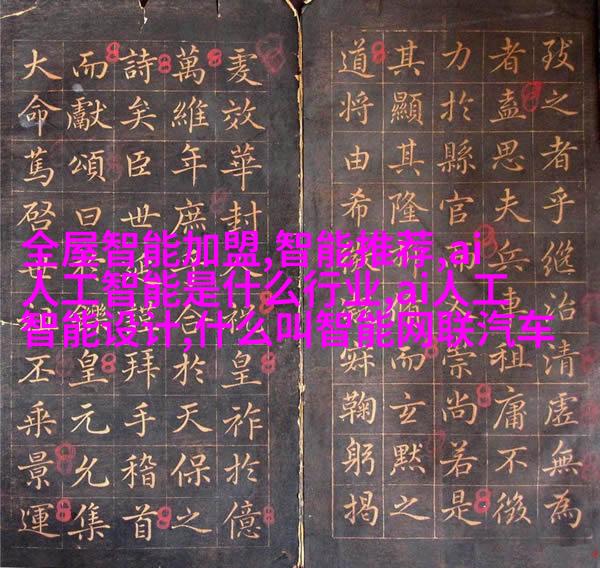 全屋智能加盟,智能推荐,ai
人工智能是什么行业,ai人工
智能设计,什么叫智能网联汽车
之者乎繼治清虛無為
者思夫兵車租庸不徵
力於縣官而崇尚若是
其顯其隆而玄默之
道將由希鞠躬揭
效華封人祝皇祚於億
萬維年庶合於天保之
詩矣臣世拜手稽首
而獻頌曰於鑠皇元允集
大命篤啓世祖丕乘景運